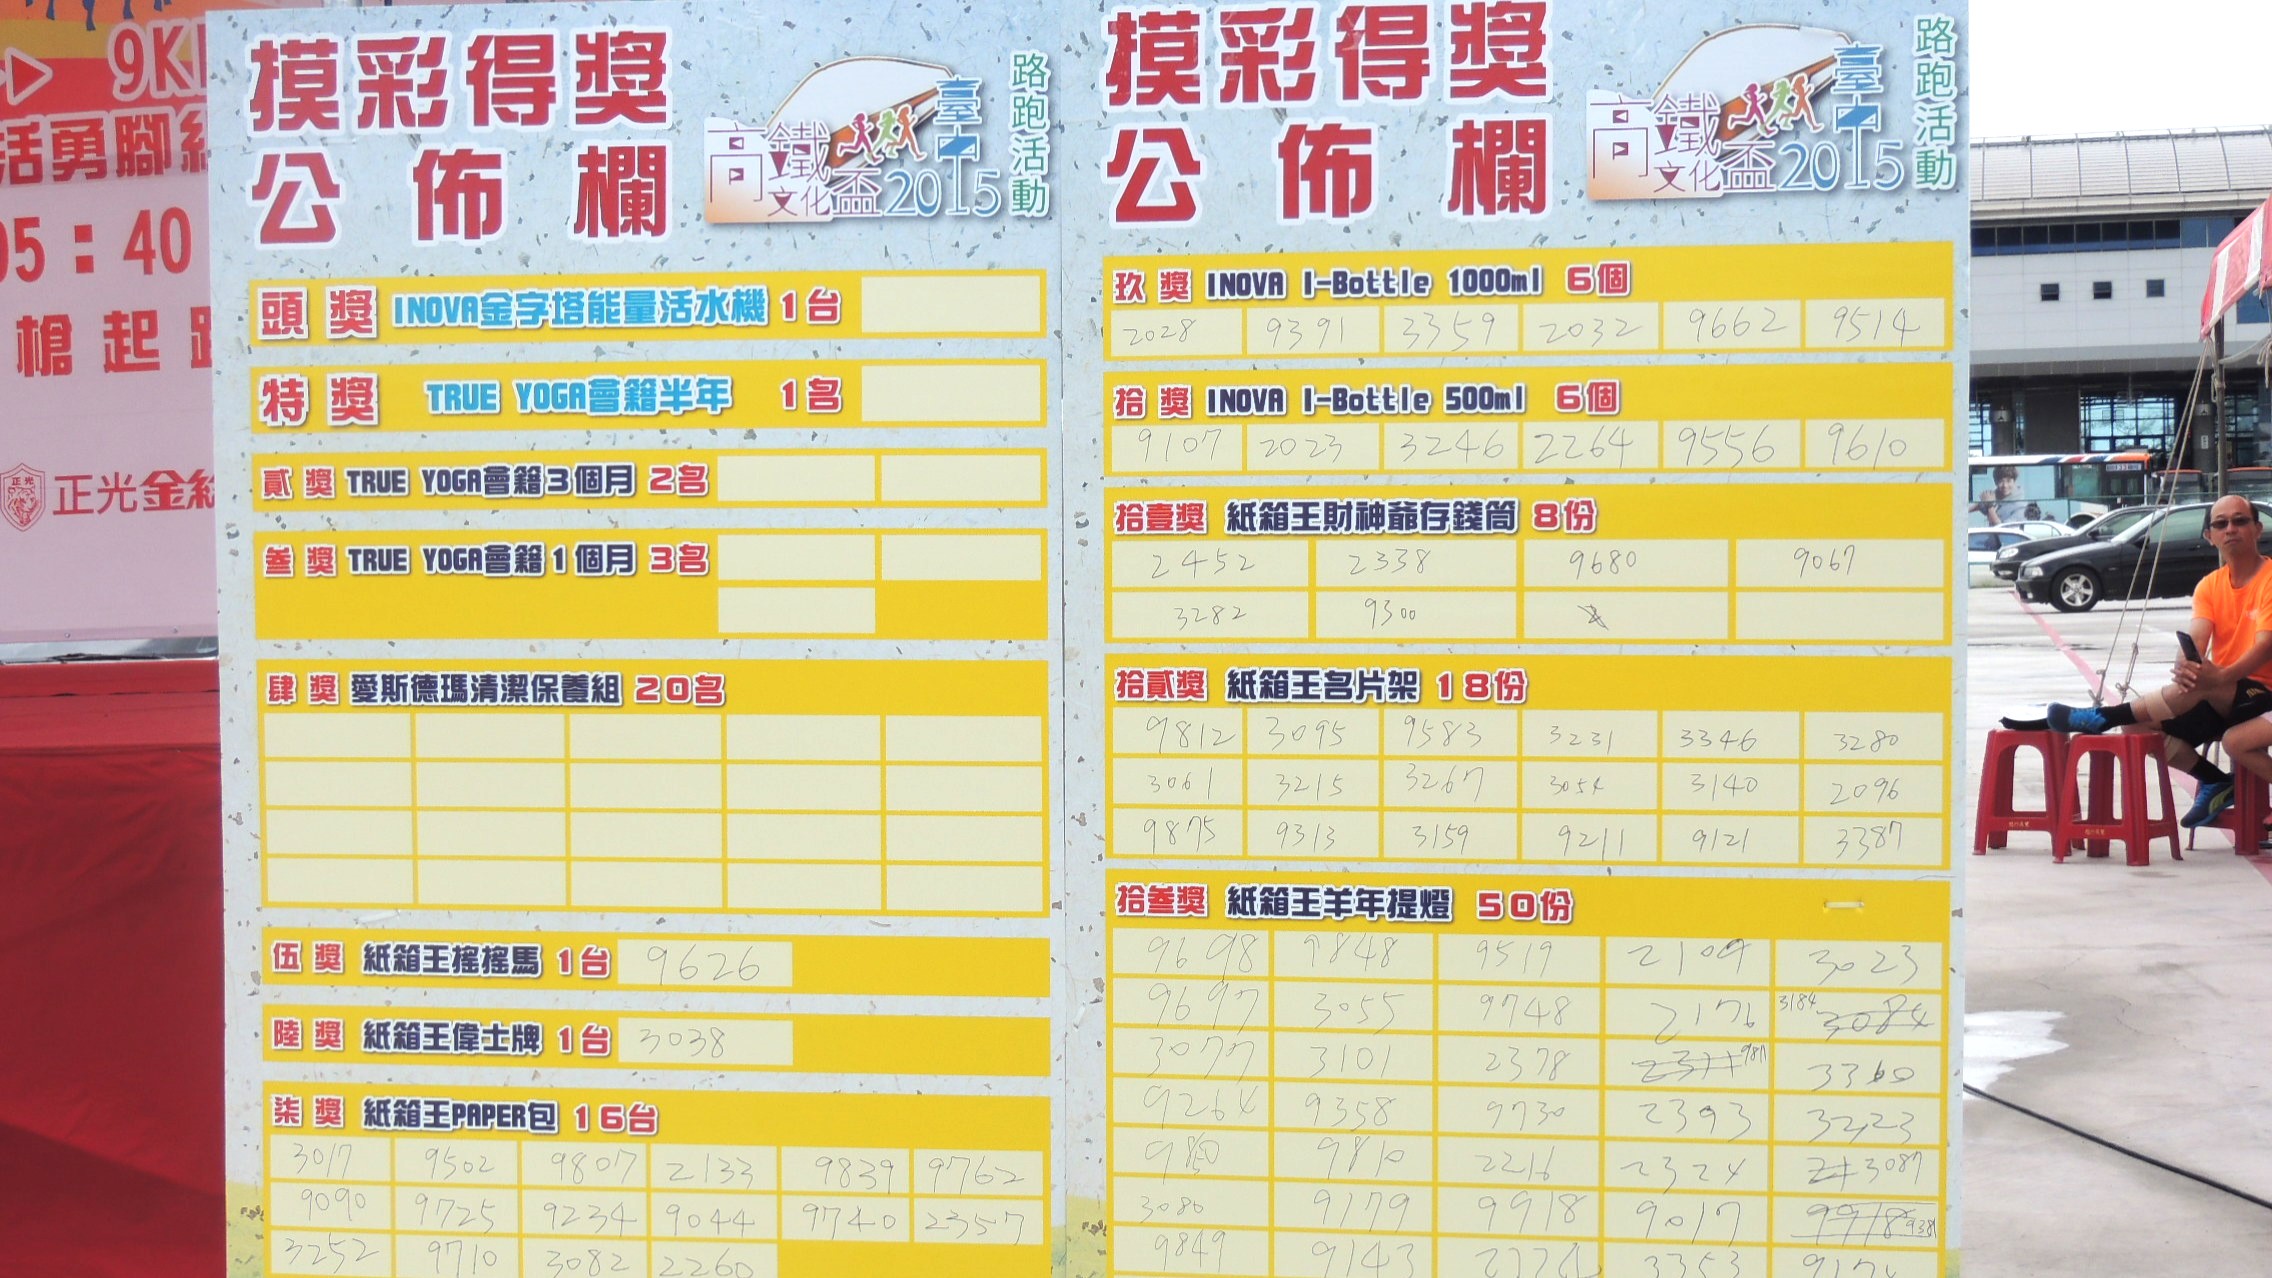 9K
活勇腳
05：40
槍起跑
正光
正光金絲
摸彩得獎
公佈欄
高鐵文化盃2015
臺中
路跑活動
頭獎 INOVA金字塔能量活水機 1台
特獎 TRUE YOGA會籍半年 1名
貳獎 TRUE YOGA會籍3個月 2名
叁獎 TRUE YOGA會籍1個月 3名
肆獎 愛斯德瑪清潔保養組 20名
伍獎 紙箱王搖搖馬 1台 9626
陸獎 紙箱王偉士牌 1台 3038
柒獎 紙箱王PAPER包 16台
3017 9502 9807 2133 9839 9762
9090 9725 9234 9044 9740 2357
3252 9710 3082 2260
摸彩得獎
公佈欄
高鐵文化盃2015
臺中
路跑活動
玖獎 INOVA I-Bottle 1000ml 6個
2028 9391 3359 2032 9662 9514
拾獎 INOVA I-Bottle 500ml 6個
9107 2023 3246 2264 9556 9610
拾壹獎 紙箱王財神爺存錢筒 8份
2452 2338 9680 9067
3282 9300
拾貳獎 紙箱王名片架 18份
9812 3095 9583 3231 3346 3280
3061 3215 3267 3054 3140 2096
9875 9313 3159 9211 9121 3387
拾叁獎 紙箱王羊年提燈 50份
9698 9848 9519 2109 3023
9697 3055 9748 2176 3184 3084
3077 3101 2378 3360
9264 9358 9730 2393 3223
9810 2216 2324 3087
3080 9179 9918 9017 9918
9849 9143 3353